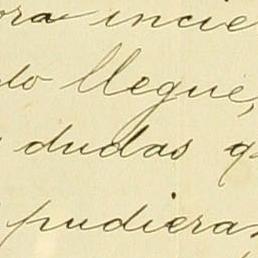 ora incie
do llegue,
dudas q
pudieran